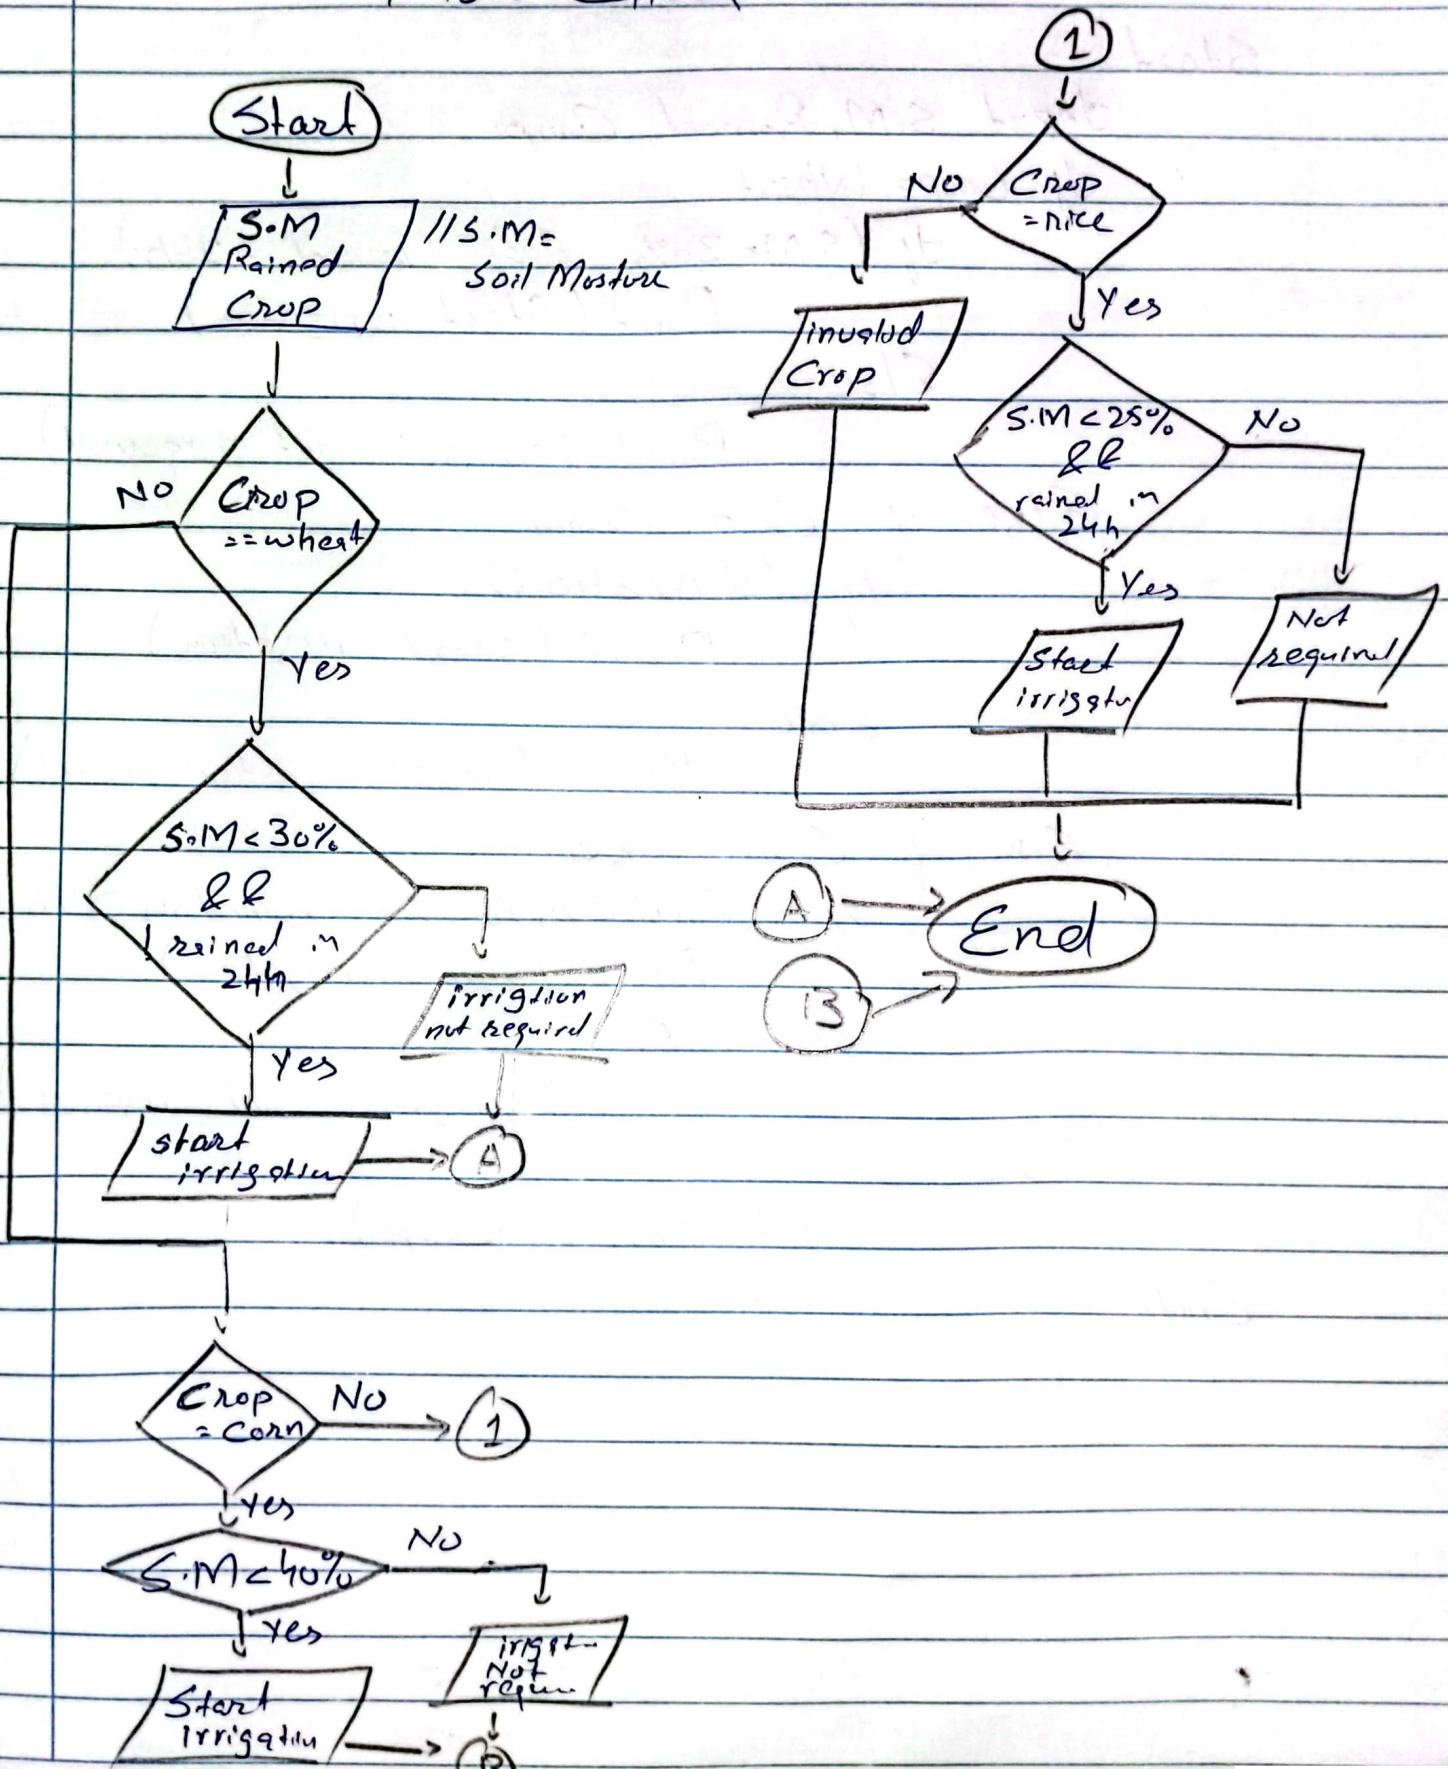 Start
S.M
Rained
Crop
//S.M=
Soil Mosture
Crop
==wheat
NO
Yes
S.M<30%
&&
! rained in
24h
irrigtion
not required
Yes
start
irrigation
A
Crop
= Corn
NO
1
Yes
S.M<40%
NO
Yes
Not
Start
irrigation
1
Crop
=rice
NO
Yes
invalid
Crop
S.M<25%
&&
rained in
24h
NO
Yes
Start
Not
A
End
B